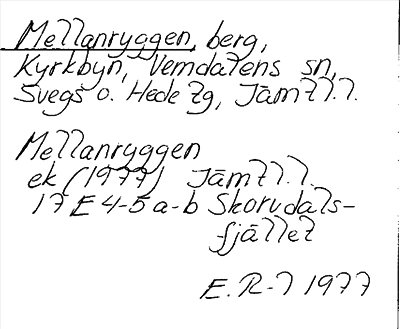 Mellanryggen, berg,
Kyrkbyn, Vemdalens sn,
Svegs o. Hede tg, Jämtl.l.
Mellanryggen
ek (1977) Jämtl.l.
17 E 4-5 a-b Skorvdals-
fjället
E. R-l 1977